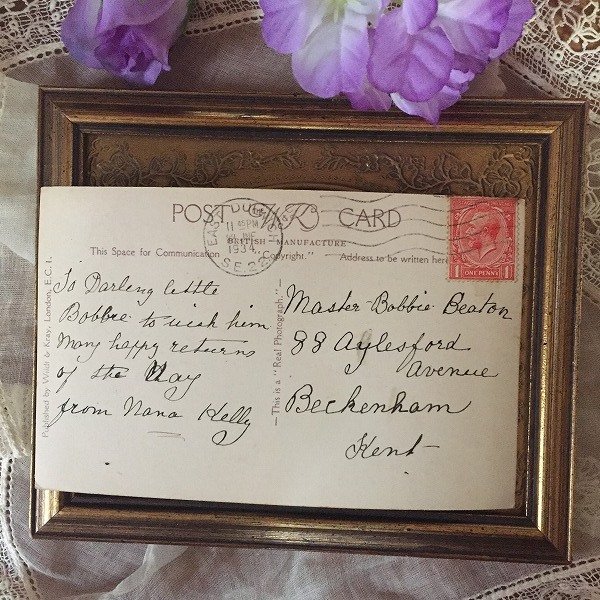 POST WK CARD
BRITISH MANUFACTURE
This Space for Communication "Copyright." Address to be written here
EAST DULWICH
11 45 PM
JNE
1934
S.E.22
ONE PENNY
1 1
To Darling little
Bobbie to wish him
Many happy returns
of the Day
from Nana Kelly
Master Bobbie Beaton
88 Aylesford
Avenue
Beckenham
Kent
Published by Wildt & Kray, London, E.C.1.
—This is a "Real Photograph."—